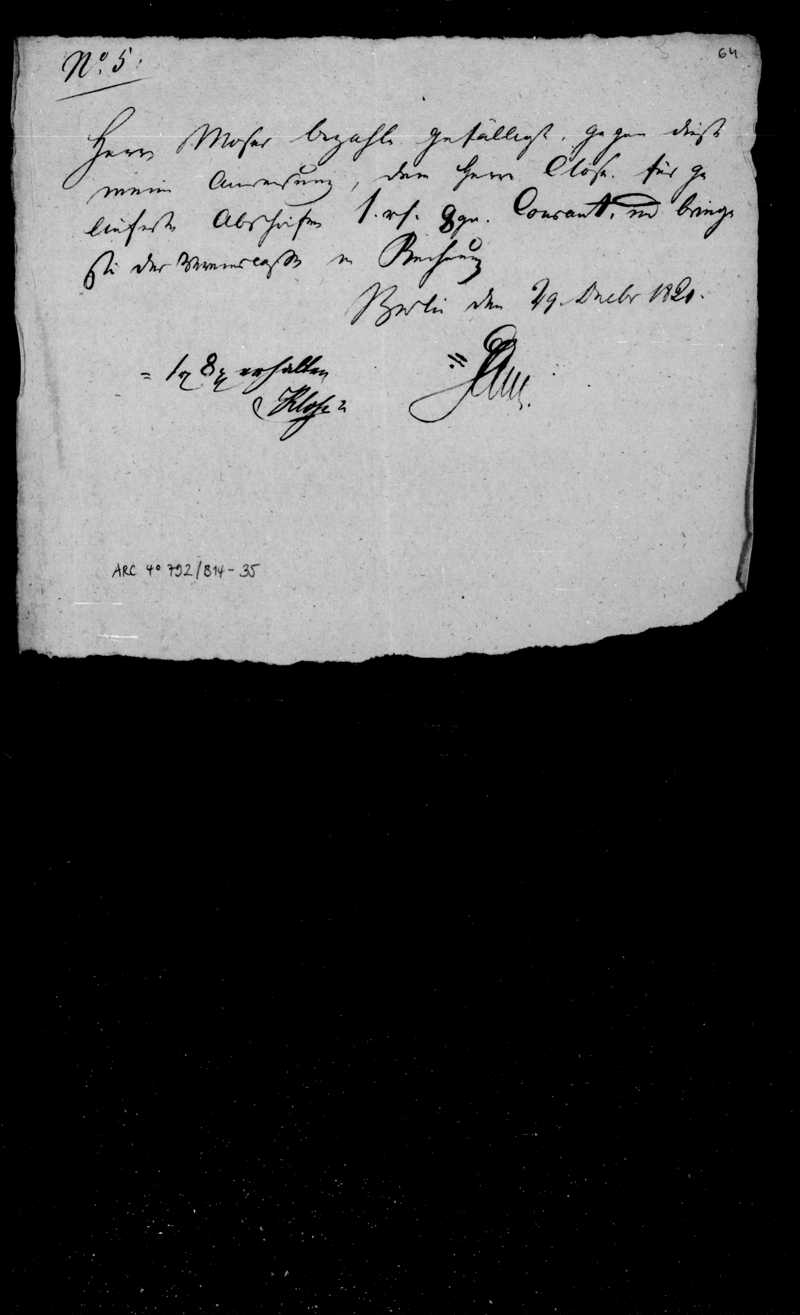 64
No. 5.
Herr Moser bezahle gefälligst, gegen diese
meine Anweisung, dem Herrn Close. für ge
lieferte Abschriften 1. rh. 8 gr. Courant, und bringe
sie der Vereinscasse in Rechnung
Berlin den 29. Decbr 1820.
= 1 8 erhalten
Klose
ARC 4° 792/B14-35